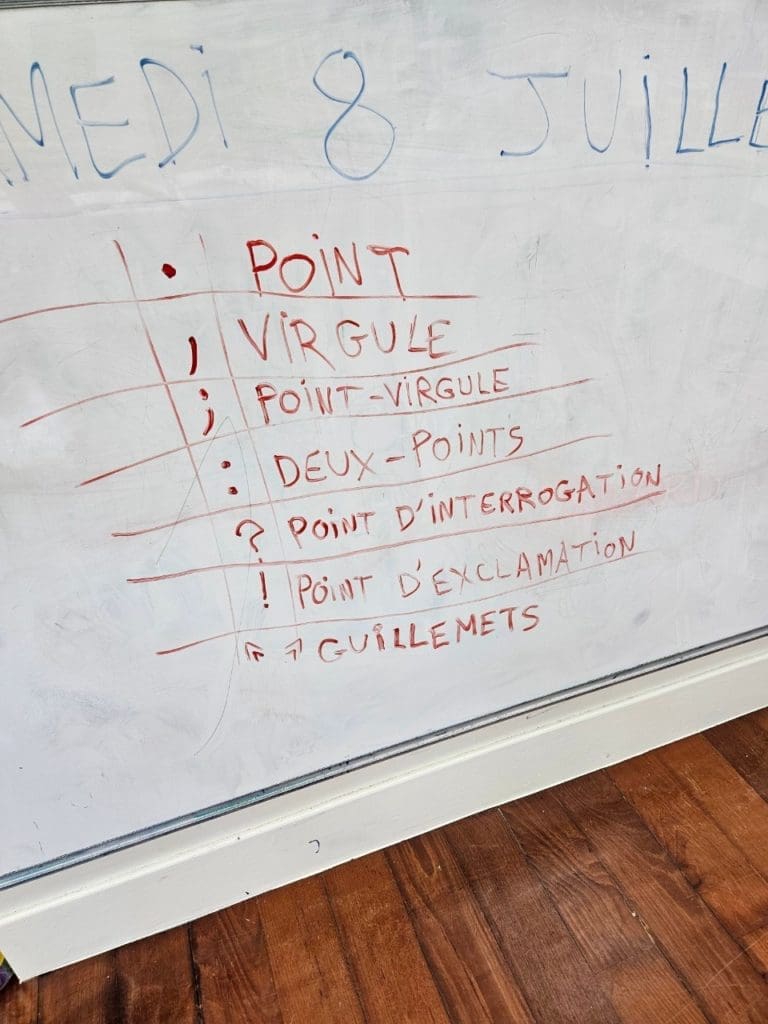 MEDI 8 JUILLE
. POINT
, VIRGULE
; POINT-VIRGULE
: DEUX-POINTS
? POINT D'INTERROGATION
! POINT D'EXCLAMATION
« » GUILLEMETS